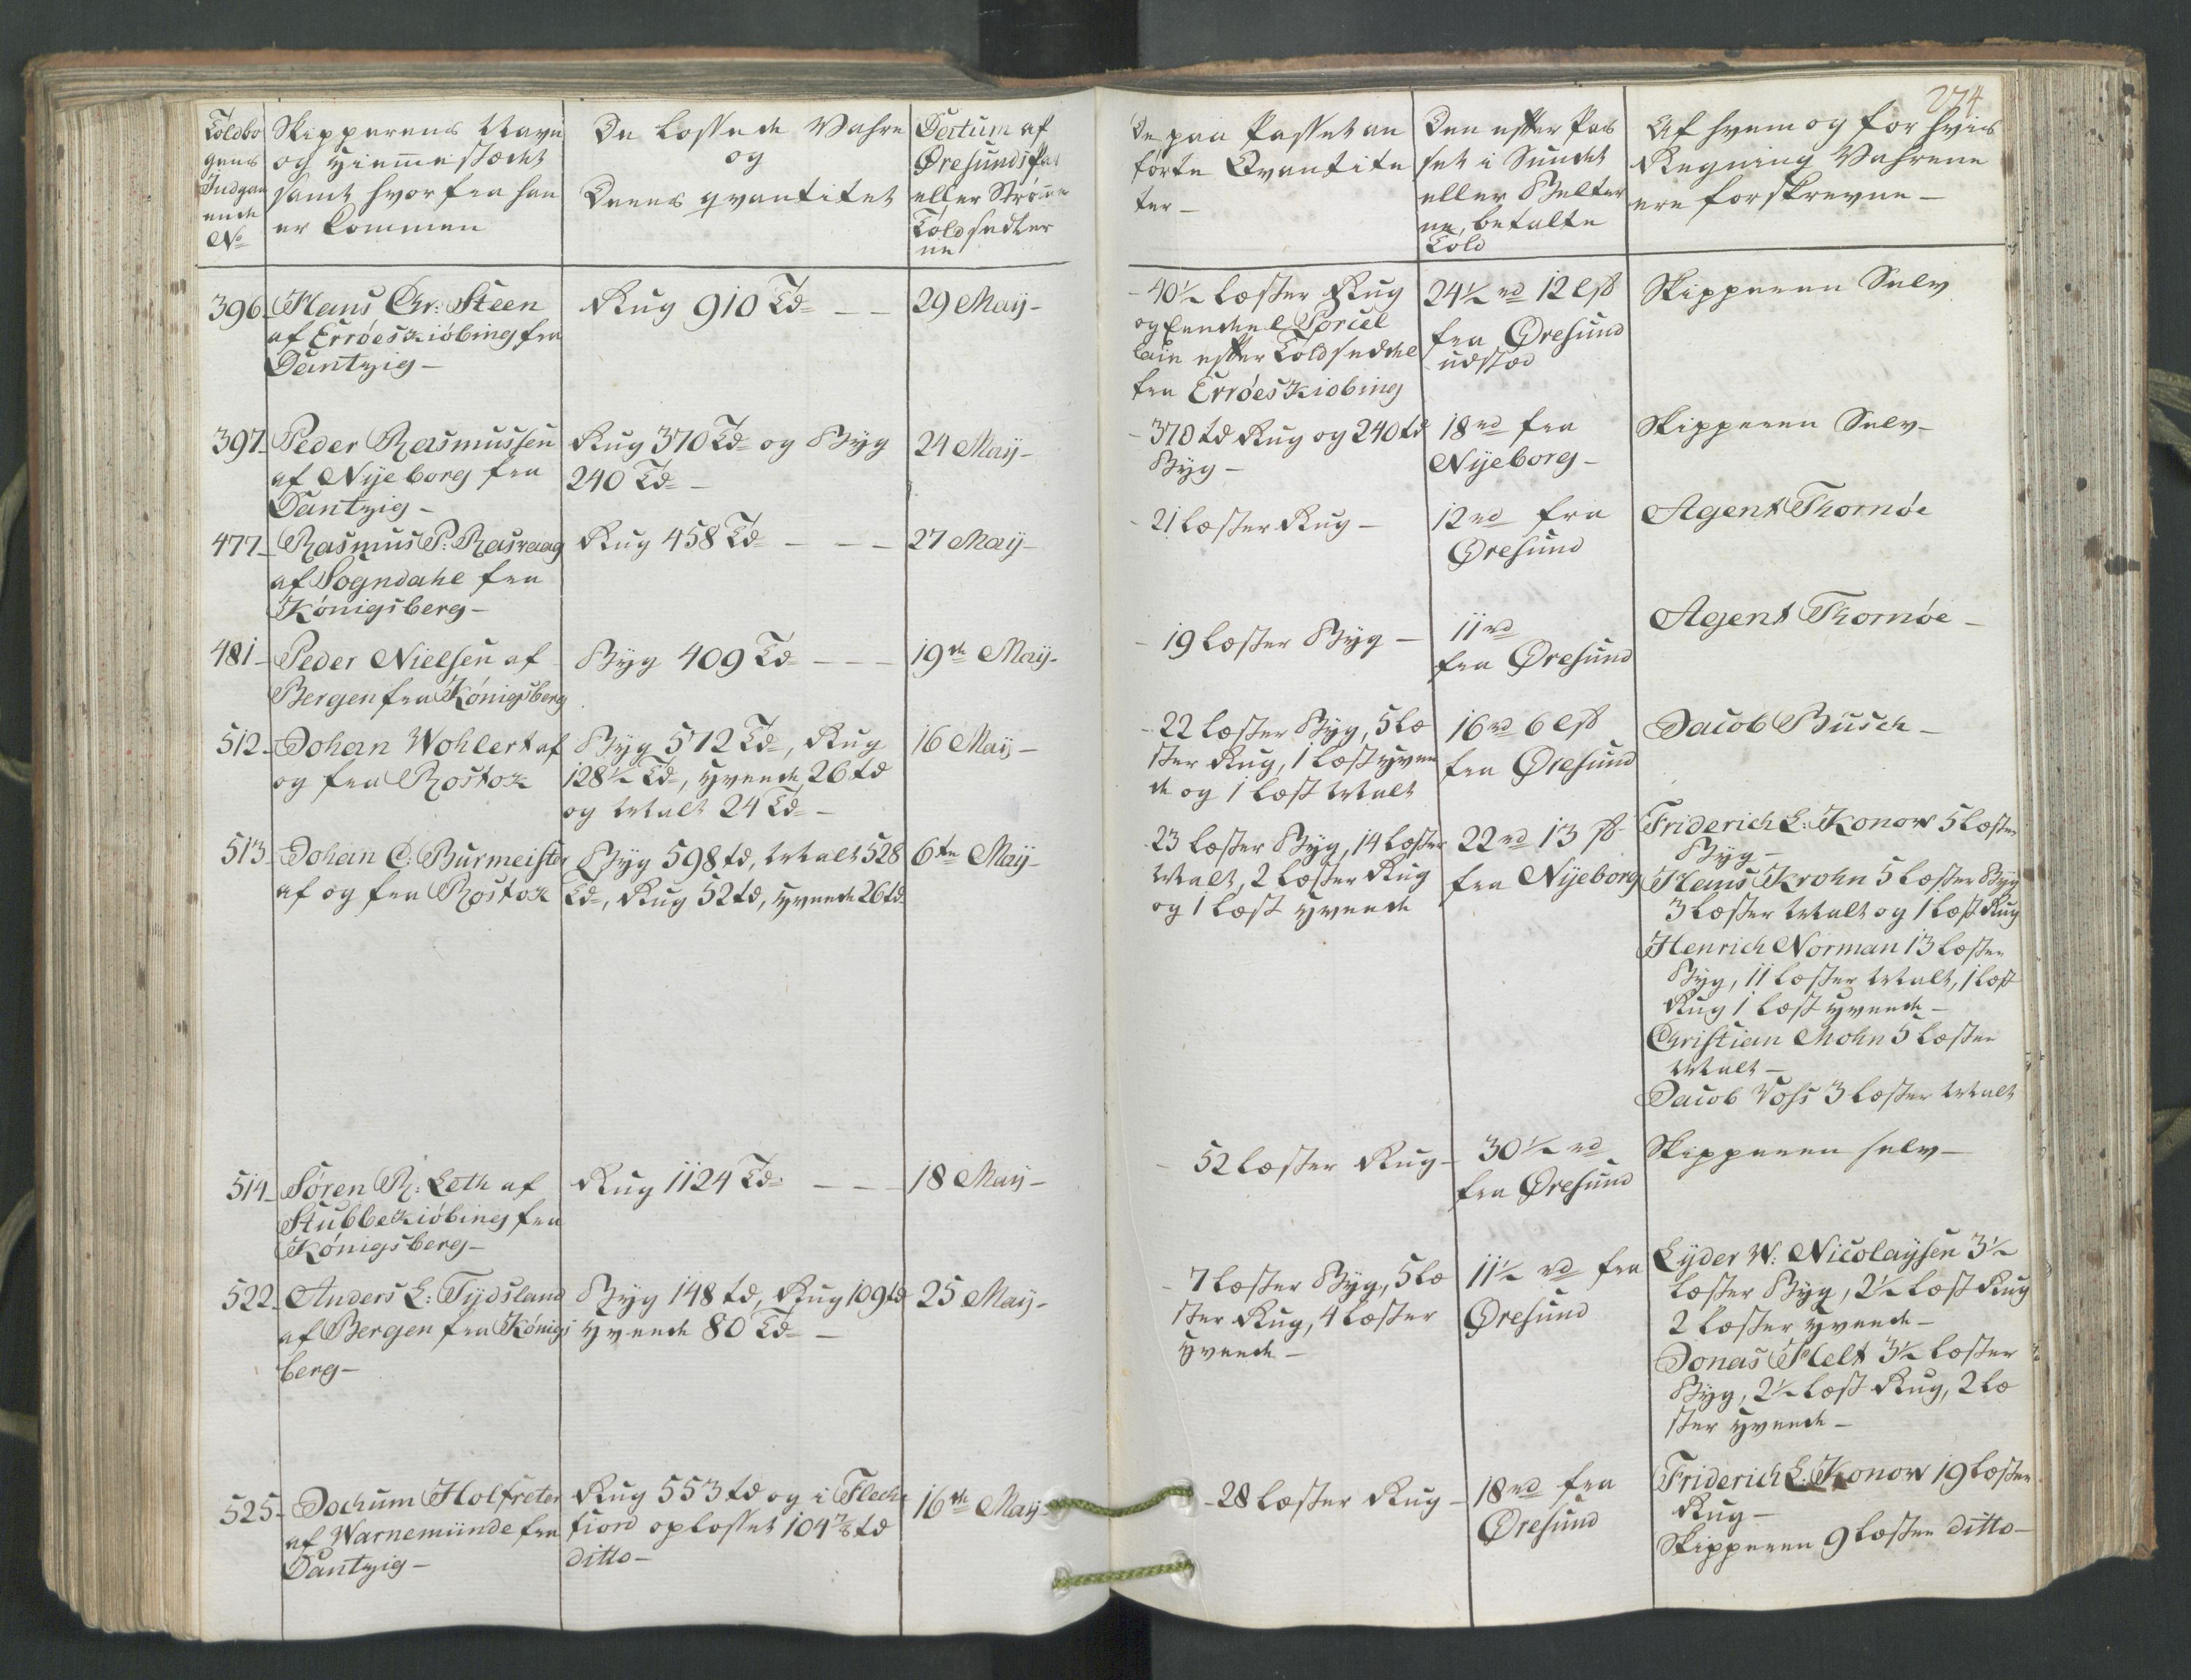 274
Toldbo
gens
Indgaa
ende
No
Skipperens Navn
og Hiemmestædet
samt hvorfra han
er kommen
De lossede Vahre
og
Deres qvantitet
Datum af
Øresunds Pas
eller Strømme
Toldsedler
ne
De paa Passet an
førte Qvantite
ter -
Den efter Pas
set i Sundet
eller Belter
ne, betalte
Told
Af hvem og for hvis
Regning Vahrene
ere forskrevne -
396 - Hans Chr: Steen
af Erröeskiöbing fra
Dantzig -
Rug 910 Td - -
29 Maÿ -
- 40½ læster Rug
og Porcel
lain efter Toldseddel
fra Erröeskiöbing
24½ rd 12 lß
fra Øresund
udstæd
Skipperen Selv
397 - Peder Rasmussen
af Nÿeborg fra
Dantzig -
Rug 370 Td og Bÿg
240 Td -
24 Maÿ -
- 370 td Rug og 240 td
Bÿg -
18 rd fra
Nÿeborg -
Skipperen Selv -
477 - Rasmus P: Rasvaag
af Sogndahl fra
Königsberg -
Rug 458 Td - - -
27 Maÿ -
- 21 læster Rug -
12 rd fra
Øresund
Agent Thornöe
481 - Peder Nielsen af
Bergen fra Königsberg
Bÿg 409 Td - - -
19de Maÿ -
- 19 læster Bÿg -
11 rd
fra Øresund
Agent Thornöe -
512 - Johan Wohlert af
og fra Rostok
Bÿg 572 Td, Rug
128½ Td, hvede 26 td
og Malt 24 Td -
16 Maÿ -
- 22 læster Bÿg, 5 læ
ster Rug, 1 læst hvee
de og 1 læst Malt
16 rd 6 lß
fra Øresund
Jacob Busch -
513 - Johan C: Burmeister
af og fra Rostok
Bÿg 598 td, Malt 528
Td, Rug 52 td, hvede 26 td
6te Maÿ -
- 23 læster Bÿg, 14 læster
Malt, 2 læster Rug
og 1 læst hvede
22 rd 13 ß
fra Nÿeborg
Friderich L: Konow 5 læster
Bÿg -
Hans Krohn 5 læster Bÿg
3 læster Malt og 1 læst Rug
Henrich Norman 13 læster
Bÿg, 11 læster Malt, 1 læst
Rug 1 læst hvede -
Christian Mohn 5 læster
Malt -
Jacob Voss 3 læster Malt
514 - Sören R: Leth af
Stubbekiöbing fra
Königsberg -
Rug 1124 Td - - -
18 Maÿ -
- 52 læster Rug -
30½ rd
fra Øresund
Skipperen selv -
522 - Anders L: Tÿdsland
af Bergen fra Königs
berg -
Bÿg 148 td, Rug 109 td
hvede 80 Td -
25 Maÿ -
- 7 læster Bÿg, 5 læ
ster Rug, 4 læster
hvede -
11½ rd fra
Øresund
Lÿder W: Nicolaÿsen 3½
læster Bÿg, 2½ læst Rug
2 læster hvede -
Jonas Helt 3½ læster
Bÿg, 2½ læst Rug, 2 læ
ster hvede -
525 - Jochum Holfreter
af Warnemünde fra
Dantzig -
Rug 553 td og i Flecke
fiord oplosset 104⅞ td
ditto -
16de Maÿ -
- 28 læster Rug -
18 rd fra
Øresund
Friderich L: Konow 19 læster
Rug -
Skipperen 9 læster ditto -